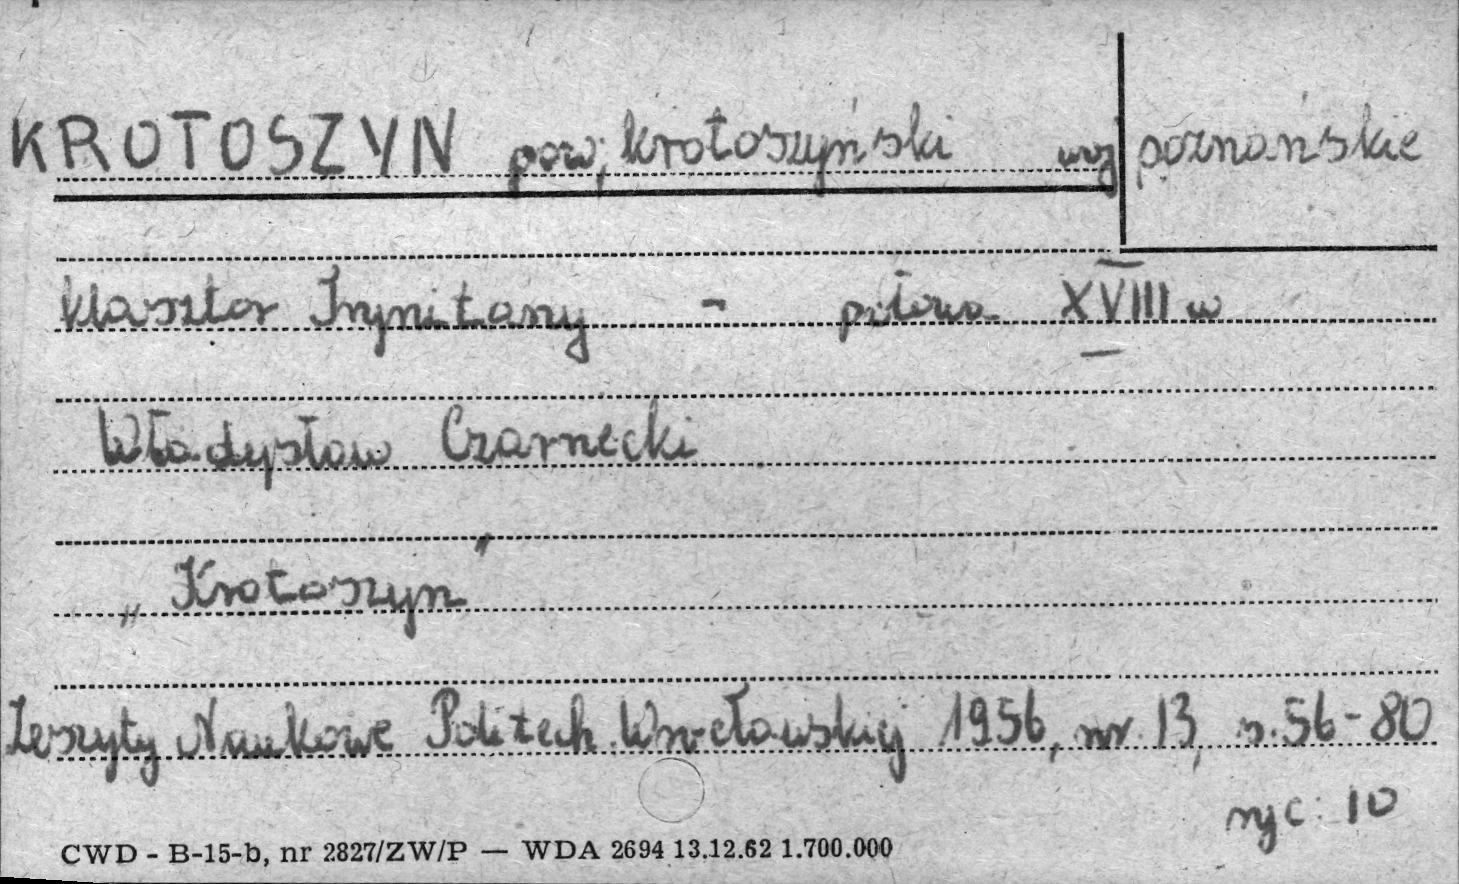 KROTOSZYN pow, krotoszyński woj poznańskie
klasztor Trynitarzy - połowa XVIII w
Władysław Czarnecki
„Krotoszyn"
Zeszyty Naukowe Politech. Wrocławskiej 1956, nr. 13, s. 56-80
ryc: 10
CWD - B-15-b, nr 2827/ZW/P — WDA 2694 13.12.62 1.700.000